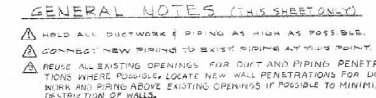 GENERAL NOTES (THIS SHEET ONLY)
1 HOLD ALL DUCTWORK & PIPING AS HIGH AS POSSIBLE.
2 CONNECT NEW PIPING TO EXIST PIPING AT THIS POINT.
3 REUSE ALL EXISTING OPENINGS FOR DUCT AND PIPING PENETR
TIONS WHERE POSSIBLE. LOCATE NEW WALL PENETRATIONS FOR DU
WORK AND PIPING ABOVE EXISTING OPENINGS IF POSSIBLE TO MINIMI
DESTRUCTION OF WALLS.